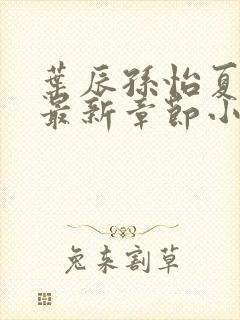 葉辰孫怡夏
最新章節小
兔來割草